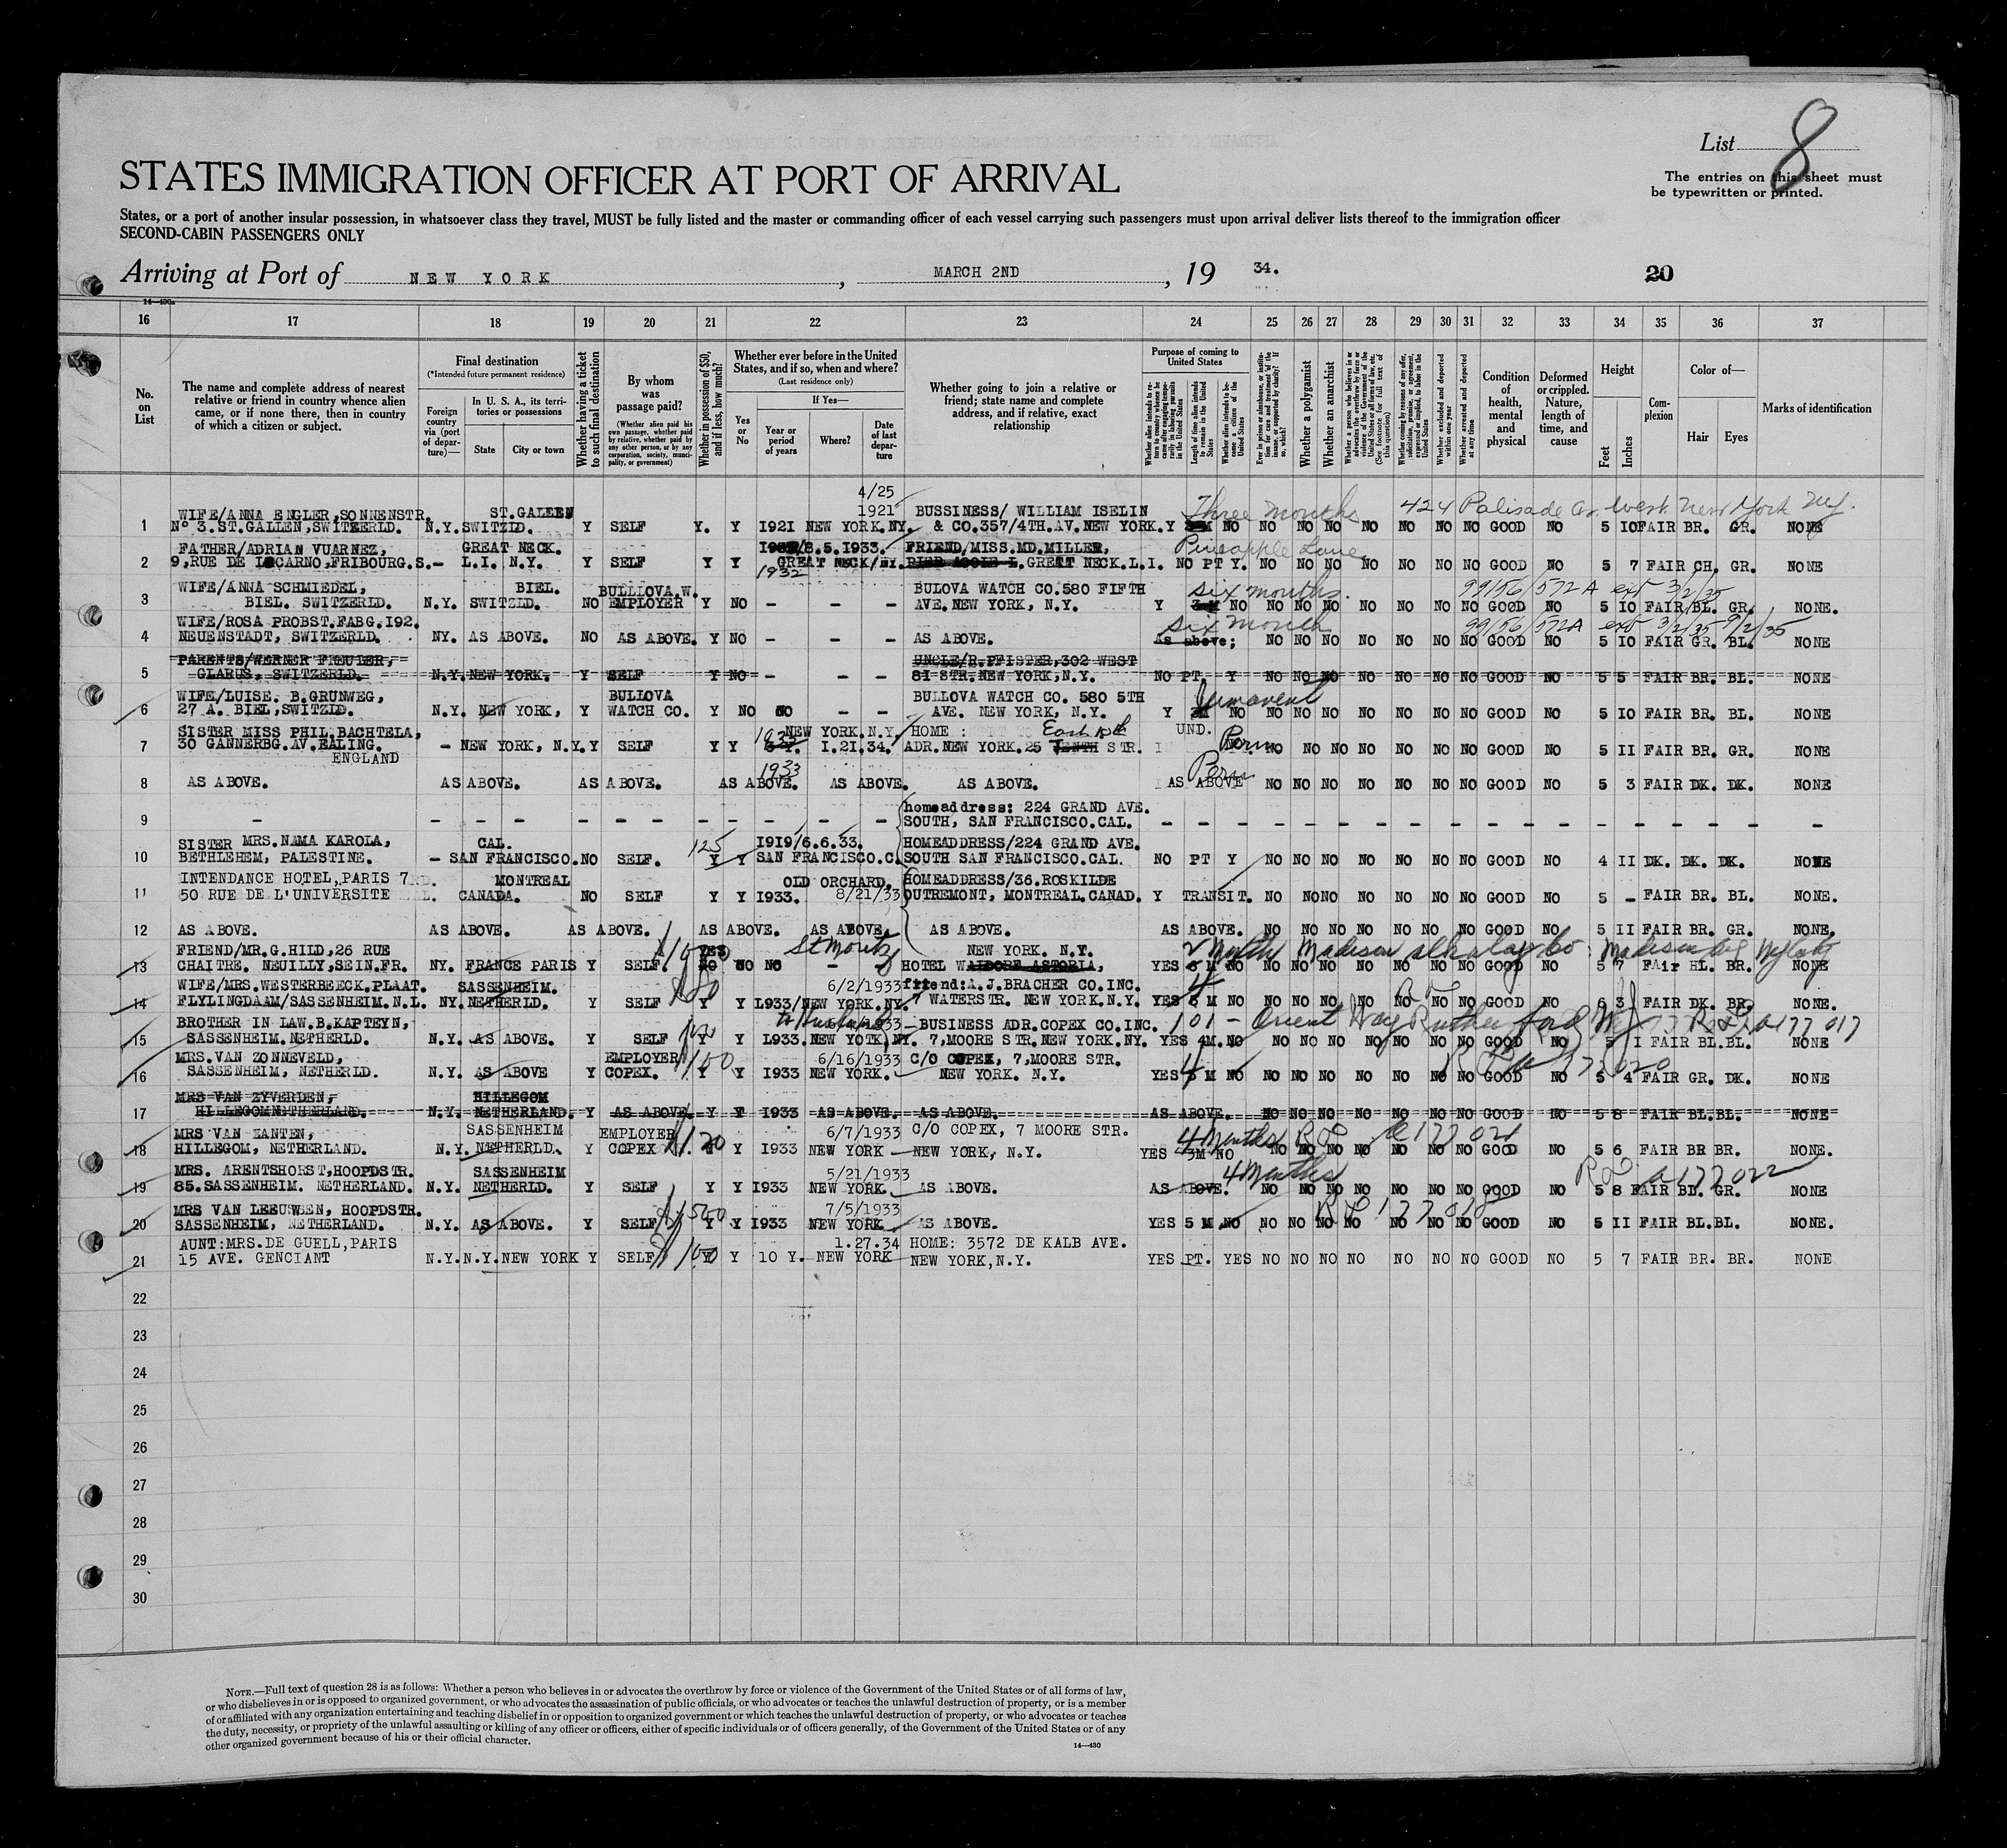 List 8
The entries on this sheet must
be typewritten or printed.
STATES IMMIGRATION OFFICER AT PORT OF ARRIVAL
States, or a port of another insular possession, in whatsoever class they travel, MUST be fully listed and the master or commanding officer of each vessel carrying such passengers must upon arrival deliver lists thereof to the immigration officer
SECOND-CABIN PASSENGERS ONLY
Arriving at Port of NEW YORK, MARCH 2ND, 19 34. 20
14—430a
16 17 18 19 20 21 22 23 24 25 26 27 28 29 30 31 32 33 34 35 36 37
No. on List
The name and complete address of nearest
relative or friend in country whence alien
came, or if none there, then in country
of which a citizen or subject.
Final destination
(*Intended future permanent residence)
Foreign country via (port of departure)—
In U. S. A., its territories or possessions
State City or town
Whether having a ticket to such final destination
By whom was passage paid?
(Whether alien paid his own passage, whether paid by relative, whether paid by any other person, or by any corporation, society, municipality, or government)
Whether in possession of $50, and if less, how much?
Whether ever before in the United States, and if so, when and where?
(Last residence only)
Yes or No
If Yes—
Year or period of years
Where?
Date of last departure
Whether going to join a relative or
friend; state name and complete
address, and if relative, exact
relationship
Purpose of coming to United States
Whether alien intends to return to country whence he came after engaging temporarily in laboring pursuits in the United States
Length of time alien intends to remain in the United States
Whether alien intends to become a citizen of the United States
Whether a polygamist
Whether an anarchist
Whether excluded and deported within one year
Whether arrested and deported at any time
Condition of health, mental and physical
Deformed or crippled. Nature, length of time, and cause
Height
Feet Inches
Complexion
Color of—
Hair Eyes
Marks of identification
4/25
WIFE/ANNA ENGLER,SONNENSTR. ST.GALLEN 1921 BUSSINESS/ WILLIAM ISELIN Three months 424 Palisade Av. West New York NJ.
1 No 3.ST.GALLEN,SWITZERLD. N.Y. SWITZLD. Y SELF Y. Y 1921 NEW YORK.NY. & CO.357/4TH.AV.NEW YORK. Y NO NO NO NO NO NO NO NO GOOD NO 5 10 FAIR BR. GR. NONE
FATHER/ADRIAN VUARNEZ, GREAT NECK. 8.5.1933. FRIEND/MISS.MD.MILLER, Pineapple Lane
2 9,RUE DE LOCARNO,FRIBOURG.S. - L.I. N.Y. Y SELF Y Y GREAT NECK/NY. GRETT NECK.L.I. NO PT Y. NO NO NO NO NO NO NO GOOD NO 5 7 FAIR CH. GR. NONE
1932
WIFE/ANNA SCHMIEDEL, BIEL. BULLOVA.W. BULOVA WATCH CO.580 FIFTH six months. 99/56/572A ext 3/2/35
3 BIEL. SWITZERLD. N.Y. SWITZLD. NO EMPLOYER Y NO - - - AVE.NEW YORK, N.Y. Y 3 M NO NO NO NO NO NO NO NO GOOD NO 5 10 FAIR BL. GR. NONE.
WIFE/ROSA PROBST.FABG.192. six month 99/56/572A ext 3/2/35 9/2/35
4 NEUENSTADT, SWITZERLD. NY. AS ABOVE. NO AS ABOVE. Y NO - - - AS ABOVE. As above; NO NO NO NO NO NO NO GOOD NO 5 10 FAIR GR. BL. NONE
PARENTS/WERNER FREULER, UNCLE/R.PFISTER,302 WEST
5 GLARUS, SWITZERLD. N.Y. NEW YORK. Y SELF Y NO - - - 81 STR.NEW YORK,N.Y. NO PT. Y NO NO NO NO NO NO NO GOOD NO 5 5 FAIR BR. BL. NONE
WIFE/LUISE. B.GRUNWEG, BULLOVA BULLOVA WATCH CO. 580 5TH
6 27 A. BIEL,SWITZLD. N.Y. NEW YORK, Y WATCH CO. Y NO NO - - AVE. NEW YORK, N.Y. Y NO NO NO NO NO NO NO NO GOOD NO 5 10 FAIR BR. BL. NONE
SISTER MISS PHIL.BACHTELA, 1932 NEW YORK.N.Y. HOME : East 10th UND.
7 30 GANNERBG.AV.EALING. - NEW YORK, N.Y. Y SELF Y Y 1.21.34. ADR.NEW YORK.25 TENTH STR. Perm NO NO NO NO NO NO NO GOOD NO 5 11 FAIR BR. GR. NONE
ENGLAND
1933 Perm
8 AS ABOVE. AS ABOVE. AS ABOVE. AS ABOVE. AS ABOVE. AS ABOVE. AS ABOVE NO NO NO NO NO NO NO GOOD NO 5 3 FAIR DK. DK. NONE
homeaddress: 224 GRAND AVE.
9 - - - - - - - - - - SOUTH, SAN FRANCISCO.CAL. - - - - - - - - - - - - - - - - -
SISTER MRS.NAMA KAROLA, CAL. 125 1919/6.6.33. HOMEADDRESS/224 GRAND AVE.
10 BETHLEHEM, PALESTINE. - SAN FRANCISCO. NO SELF. Y Y SAN FRANCISCO.C. SOUTH SAN FRANCISCO.CAL. NO PT Y NO NO NO NO NO NO NO GOOD NO 4 11 DK. DK. DK. NONE
INTENDANCE HOTEL,PARIS 7 MONTREAL OLD ORCHARD, HOMEADDRESS/36.ROSKILDE
11 50 RUE DE L'UNIVERSITE CANADA. NO SELF Y Y 1933. 8/21/33 OUTREMONT, MONTREAL.CANAD. Y TRANSIT. NO NO NO NO NO NO NO GOOD NO 5 - FAIR BR. BL. NONE.
12 AS ABOVE. AS ABOVE. AS ABOVE. AS ABOVE. AS ABOVE. AS ABOVE. AS ABOVE. NO NO NO NO NO NO NO GOOD NO 5 11 FAIR BR. GR. NONE.
FRIEND/MR.G.HILD,26 RUE YES St Moritz NEW YORK. N.Y. 2 Month Madison
13 CHAITRE. NEUILLY,SEIN.FR. NY. FRANCE PARIS Y SELF NO NO NO - - HOTEL WALDORF ASTORIA, YES 6 M NO NO NO NO NO NO NO NO GOOD NO 5 7 FAir HL. BR. NONE
WIFE/MRS.WESTERBEECK.PLAAT. SASSENHEIM. 6/2/1933 friend:A.J.BRACHER CO.INC. 4
14 FLYLINGDAAM/SASSENHEIM.N.L. NY. NETHERLD. Y SELF Y Y 1933/NEW YORK.NY. 7 WATERSTR. NEW YORK.N.Y. YES 6 M NO NO NO NO NO NO NO NO GOOD NO 6 3 FAIR DK. BR. NONE.
BROTHER IN LAW.B.KAPTEYN, BUSINESS ADR.COPEX CO.INC. 101 - Orient Way Rutherford NJ a177017
15 SASSENHEIM.NETHERLD. N.Y. AS ABOVE. Y SELF Y Y 1933.NEW YOTK,NY. 7,MOORE STR.NEW YORK.NY. YES 4M.NO NO NO NO NO NO NO NO GOOD NO 5 1 FAIR BL.BL. NONE
MRS.VAN ZONNEVELD, EMPLOYER 100 6/16/1933 C/O COPEX, 7,MOORE STR.
16 SASSENHEIM, NETHERLD. N.Y. AS ABOVE Y COPEX. Y Y 1933 NEW YORK. NEW YORK. N.Y. YES M NO NO NO NO NO NO NO NO GOOD NO 5 4 FAIR GR. DK. NONE
MRS VAN ZYVERDEN, HILLEGOM
17 HILLEGOMNETHERLAND. N.Y. NETHERLAND. Y AS ABOVE. Y Y 1933 AS ABOVE. AS ABOVE. AS ABOVE. NO NO NO NO NO NO NO GOOD NO 5 8 FAIR BL.BL. NONE
MRS VAN ZANTEN, SASSENHEIM EMPLOYER 6/7/1933 C/O COPEX, 7 MOORE STR. 4 Months 177021
18 HILLEGOM, NETHERLAND. N.Y. NETHERLD. Y COPEX 120 Y 1933 NEW YORK NEW YORK, N.Y. YES 3M NO NO NO NO NO NO NO NO GOOD NO 5 6 FAIR BR BR. NONE.
MRS. ARENTSHORST,HOOPDSTR. SASSENHEIM 5/21/1933 4 Months a177022
19 85.SASSENHEIM. NETHERLAND. N.Y. NETHERLD. Y SELF Y Y 1933 NEW YORK AS ABOVE. AS ABOVE. NO NO NO NO NO NO NO GOOD NO 5 8 FAIR BL. GR. NONE
MRS VAN LEEUWEN, HOOPDSTR. 500 7/5/1933 177018
20 SASSENHEIM, NETHERLAND. N.Y. AS ABOVE. Y SELF Y Y 1933 NEW YORK AS ABOVE. YES 5 M NO NO NO NO NO NO NO NO GOOD NO 5 11 FAIR BL.BL. NONE.
AUNT:MRS.DE GUELL,PARIS 100 1.27.34 HOME: 3572 DE KALB AVE.
21 15 AVE. GENCIANT N.Y. N.Y. NEW YORK Y SELF Y Y 10 Y. NEW YORK NEW YORK,N.Y. YES PT. YES NO NO NO NO NO NO NO GOOD NO 5 7 FAIR BR. BR. NONE
22
23
24
25
26
27
28
29
30
NOTE.—Full text of question 28 is as follows: Whether a person who believes in or advocates the overthrow by force or violence of the Government of the United States or of all forms of law,
or who disbelieves in or is opposed to organized government, or who advocates the assassination of public officials, or who advocates or teaches the unlawful destruction of property, or is a member
of or affiliated with any organization entertaining and teaching disbelief in or opposition to organized government or which teaches the unlawful destruction of property, or who advocates or teaches
the duty, necessity, or propriety of the unlawful assaulting or killing of any officer or officers, either of specific individuals or of officers generally, of the Government of the United States or of any
other organized government because of his or their official character.
14—430